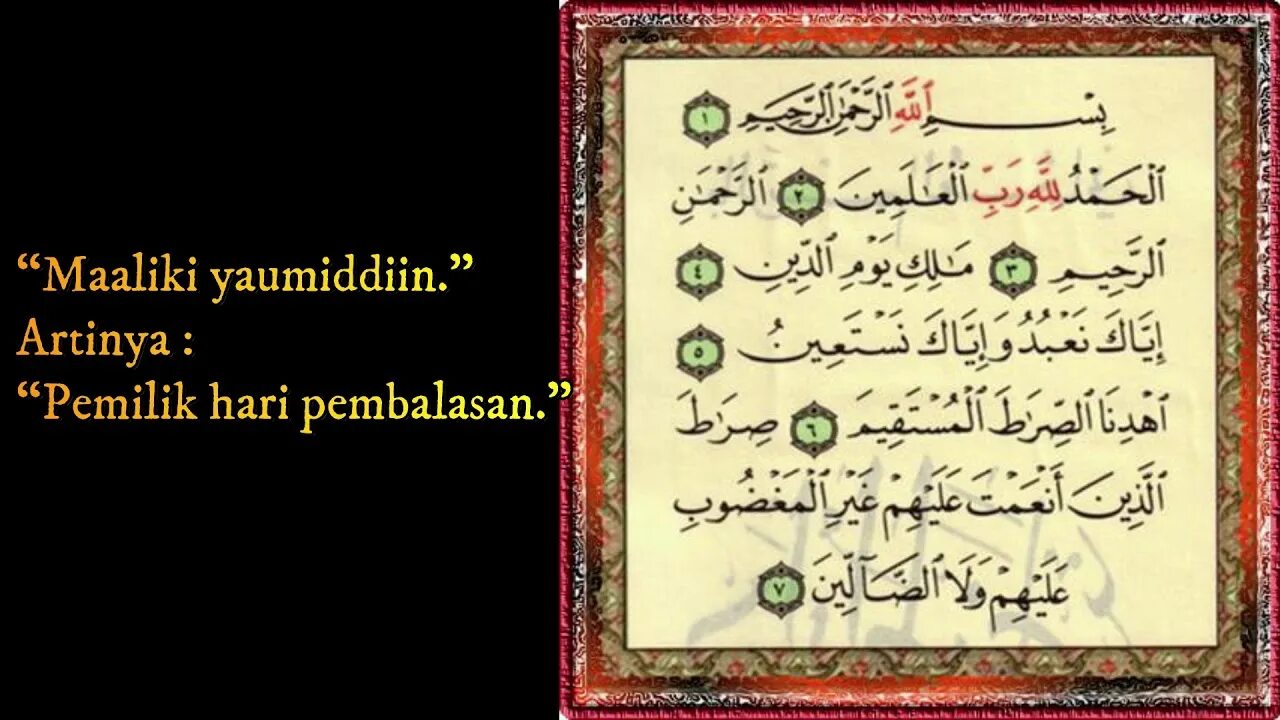 “Maaliki yaumiddiin.”
Artinya :
“Pemilik hari pembalasan.”
بِسْمِ ٱللَّهِ ٱلرَّحْمَٰنِ ٱلرَّحِيمِ ١
ٱلْحَمْدُ لِلَّهِ رَبِّ ٱلْعَٰلَمِينَ ٢ ٱلرَّحْمَٰنِ
ٱلرَّحِيمِ ٣ مَٰلِكِ يَوْمِ ٱلدِّينِ ٤
إِيَّاكَ نَعْبُدُ وَإِيَّاكَ نَسْتَعِينُ ٥
ٱهْدِنَا ٱلصِّرَٰطَ ٱلْمُسْتَقِيمَ ٦ صِرَٰطَ
ٱلَّذِينَ أَنْعَمْتَ عَلَيْهِمْ غَيْرِ ٱلْمَغْضُوبِ
عَلَيْهِمْ وَلَا ٱلضَّآلِّينَ ٧